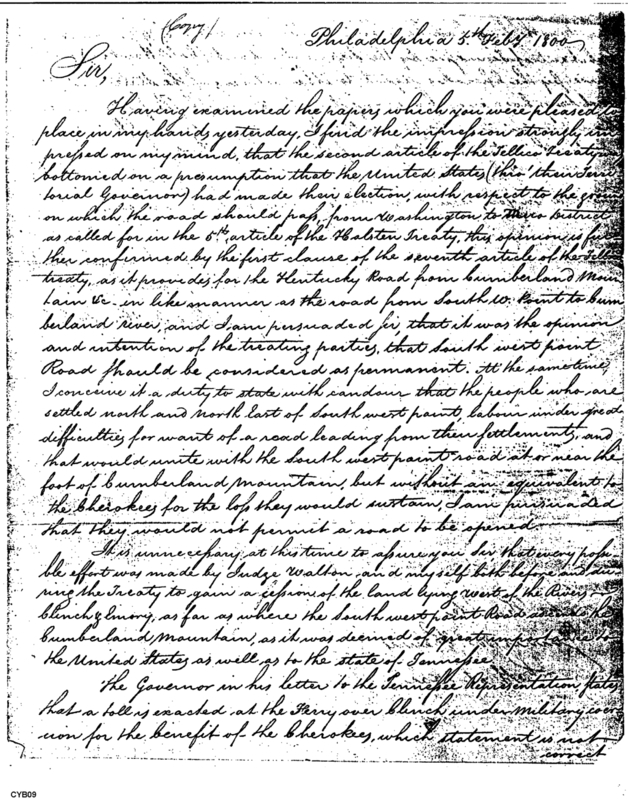 (Copy)
Philadelphia 5th Feby 1800
Sir,
Having examined the papers which you were pleased to
place in my hands yesterday, I find the impression strongly im
pressed on my mind, that the second article of the Tellico Treaty
bottomed on a presumption that the United States (thro' their Terri
torial Governor) had made their election, with respect to the ground
on which the road should pass, from Washington to Mero District
as called for in the 5th article of the Holsten Treaty, this opinion is fur
ther confirmed by the first clause of the seventh article of the Tellico
treaty, as it provides for the Kentucky Road from Cumberland Moun
tain &c. in like manner as the road from South W. Point to Cum
berland river, and I am persuaded sir, that it was the opinion
and intention of the treating parties, that South west point
Road should be considered as permanent. At the same time,
I conceive it a duty to state with candour that the people who are
settled north and North East of South west point, labour under great
difficulties for want of a road leading from their settlements, and
that would unite with the South west point road at or near the
foot of Cumberland Mountain, but without an equivalent to
the Cherokees for the loss they would sustain, I am pursuaded
that they would not permit a road to be opened.
It is unnecessary at this time to assure you Sir that every possi
ble effort was made by Judge Walton and myself both before and du
ring the Treaty to gain a cession of the land lying West of the Rivers
Clinch & Emory, as far as where the South west point Road
Cumberland Mountain, as it was deemed of great importance to
the United States as well as to the state of Tennessee
The Governor in his letter to the Tennessee Representation states
that a toll is exacted at the Ferry over Clinch under Military coer
cion for the benefit of the Cherokees, which statement is not
correct
CYB09